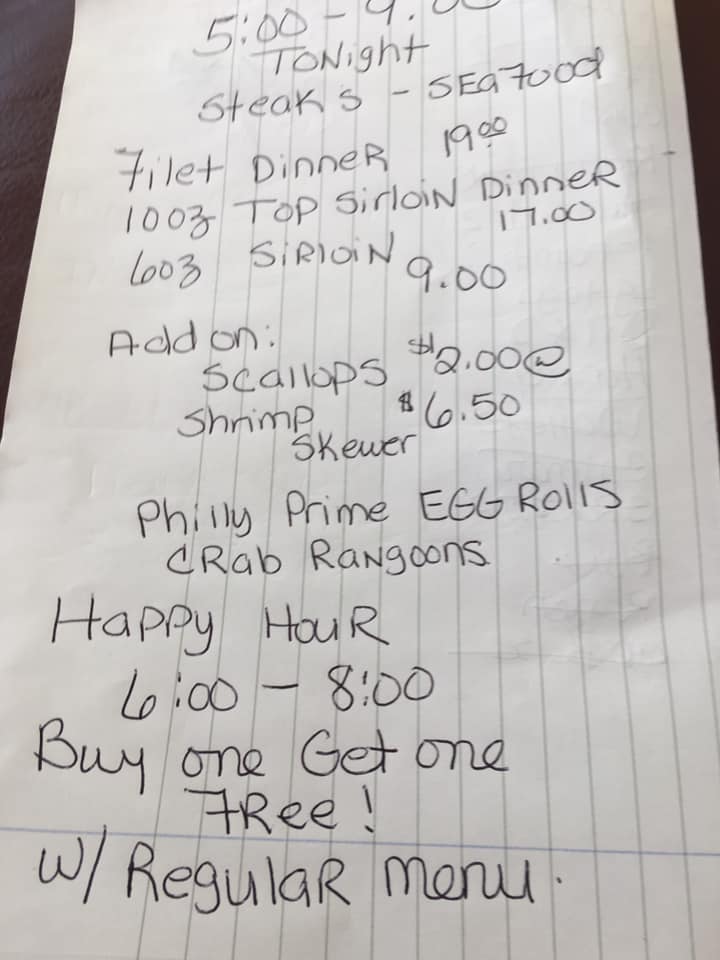 5:00 - 9:00
TONight
Steaks - SEAfood
Filet DinneR 19.00
10oz TOP SirloiN DinneR
17.00
6oz SiRloiN 9.00
Add on:
Scallops $2.00@
Shrimp $6.50
Skewer
Philly Prime EGG Rolls
CRab RaNgoons
Happy HouR
6:00 - 8:00
Buy one Get one
FRee!
W/ RegulaR menu.